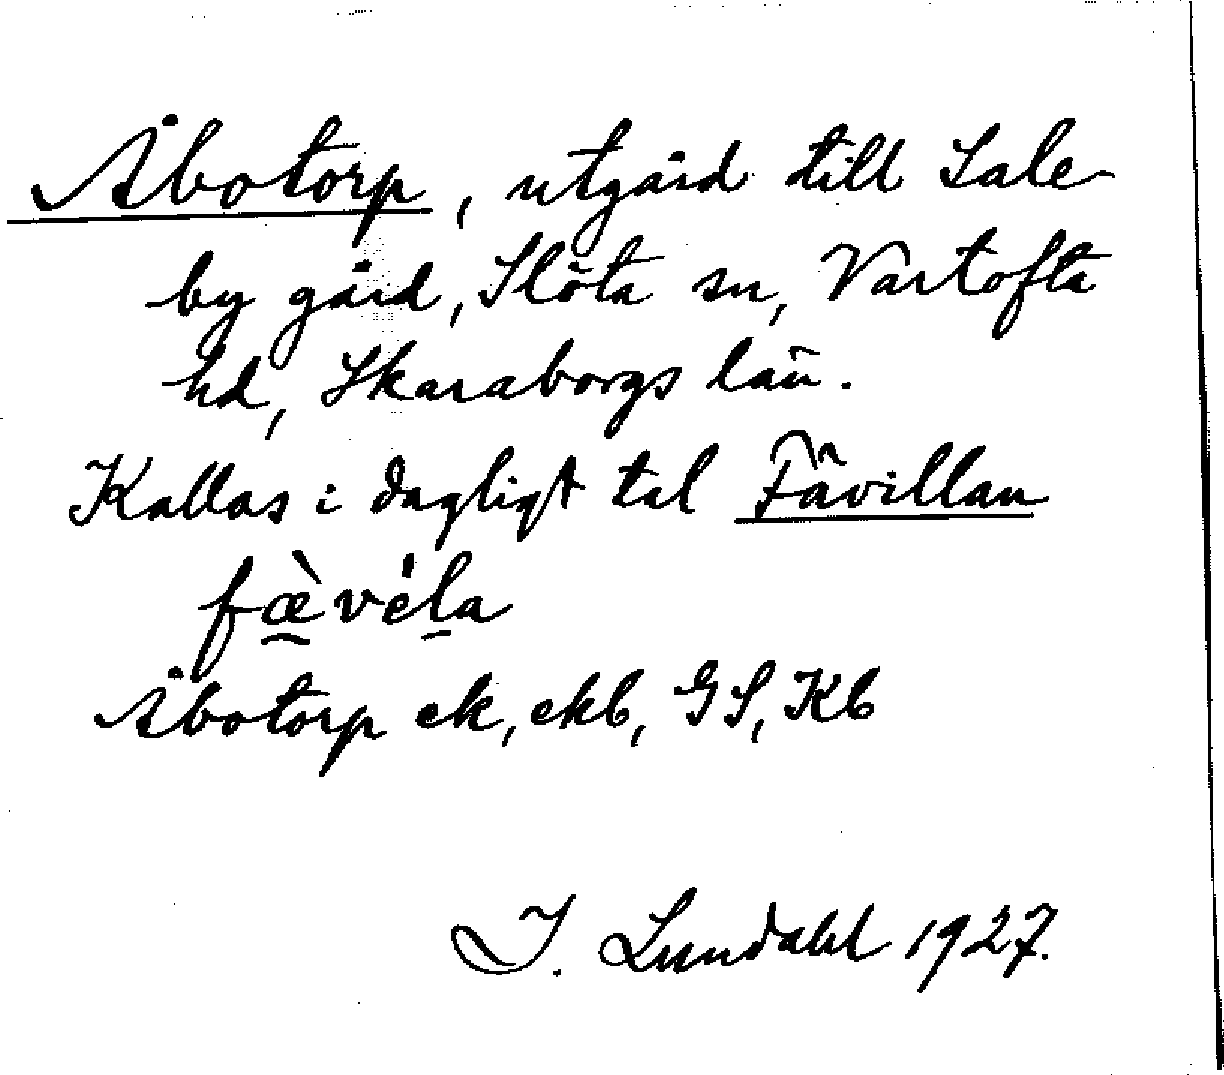 Åbotorp, utgård till Sale-
by gård, Slöta sn, Vartofta
hd, Skaraborgs län.
Kallas i dagligt tal Fävillan
fæ̀véla
Åbotorp ek, ekb, GS, Kb
I. Lundahl 1927.